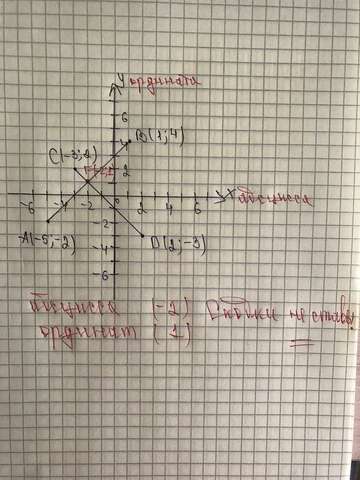 У ордината
6
4 В(1;4)
С(-3;2)
2
-6 -4 -2 2 4 6 Х абсцисса
-2
А(-5;-2)
D(2;-3)
-4
-6
абсцисса (-2) Скобки не ставь!
ординат (1)